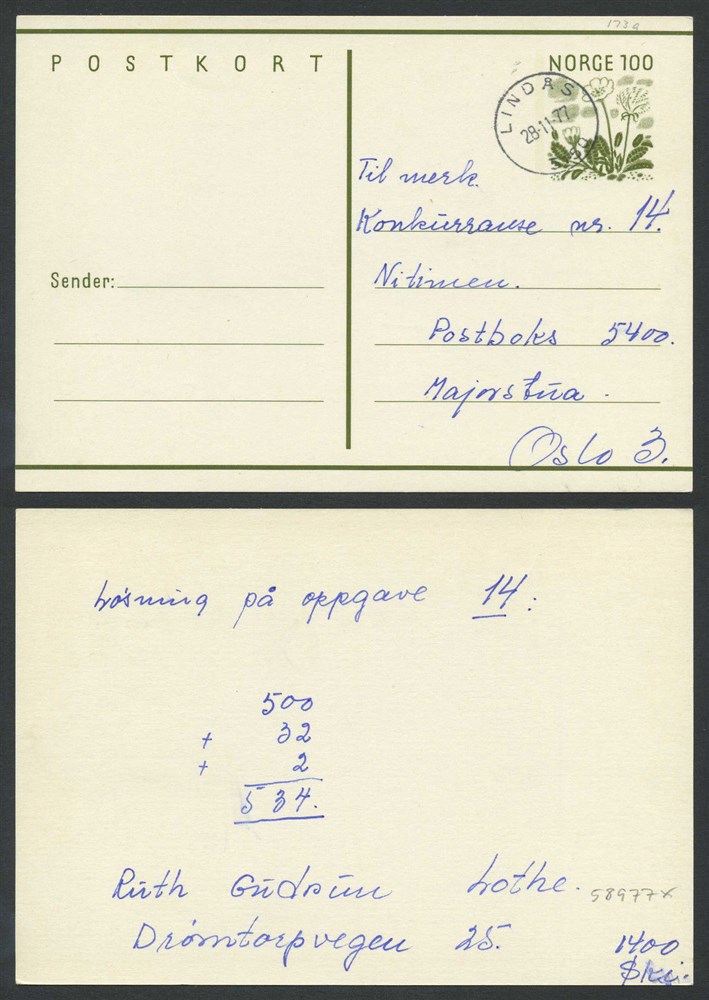 173a
POSTKORT
NORGE 100
LINDÅS
28-11-77
Til merk.
Konkurranse nr. 14.
Nitimen.
Postboks 5400.
Majorstua.
Oslo 3.
Sender:
Løsning på oppgave 14:
500
+ 32
+ 2
534.
Ruth Gudrun Lothe.
58977x
Drømtorpvegen 25.
1400
Ski.